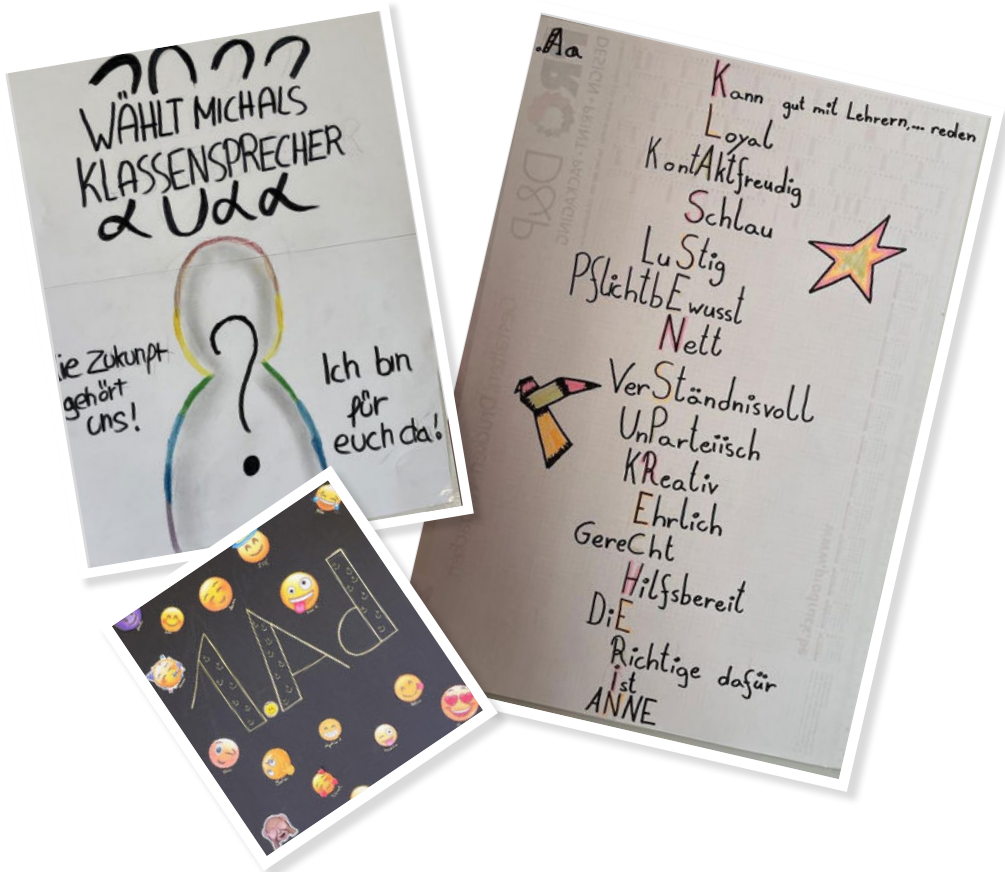 WÄHLT MICH ALS
KLASSENSPRECHER
ie Zukunft
gehört
uns!
Ich bin
für
euch da!
1Ad
.Aa
Kann gut mit Lehrern,... reden
Loyal
KontAktfreudig
Schlau
LuStig
PflichtbEwusst
Nett
VerStändnisvoll
UnParteiisch
KReativ
Ehrlich
GereCht
Hilfsbereit
DiE
Richtige dafür
ist
ANNE
DESIGN • PRINT • PACKAGING
D&P